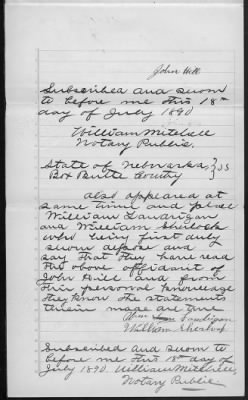 John Hill
Subscribed and sworn
to before me this 18th
day of July 1890
William Mitchell
Notary Public.
State of Nebraska, } SS
Box Butte County
Also appeared at
same time and place
William Landrigan
and William Sherlock
who being first duly
sworn depose and
say that they have read
the above affidavit of
John Hill and from
their personal knowledge
they know the statements
therein made are true
Landrigan
William Sherlock
Subscribed and sworn to
before me this 18th day of
July 1890. William Mitchell,
Notary Public.